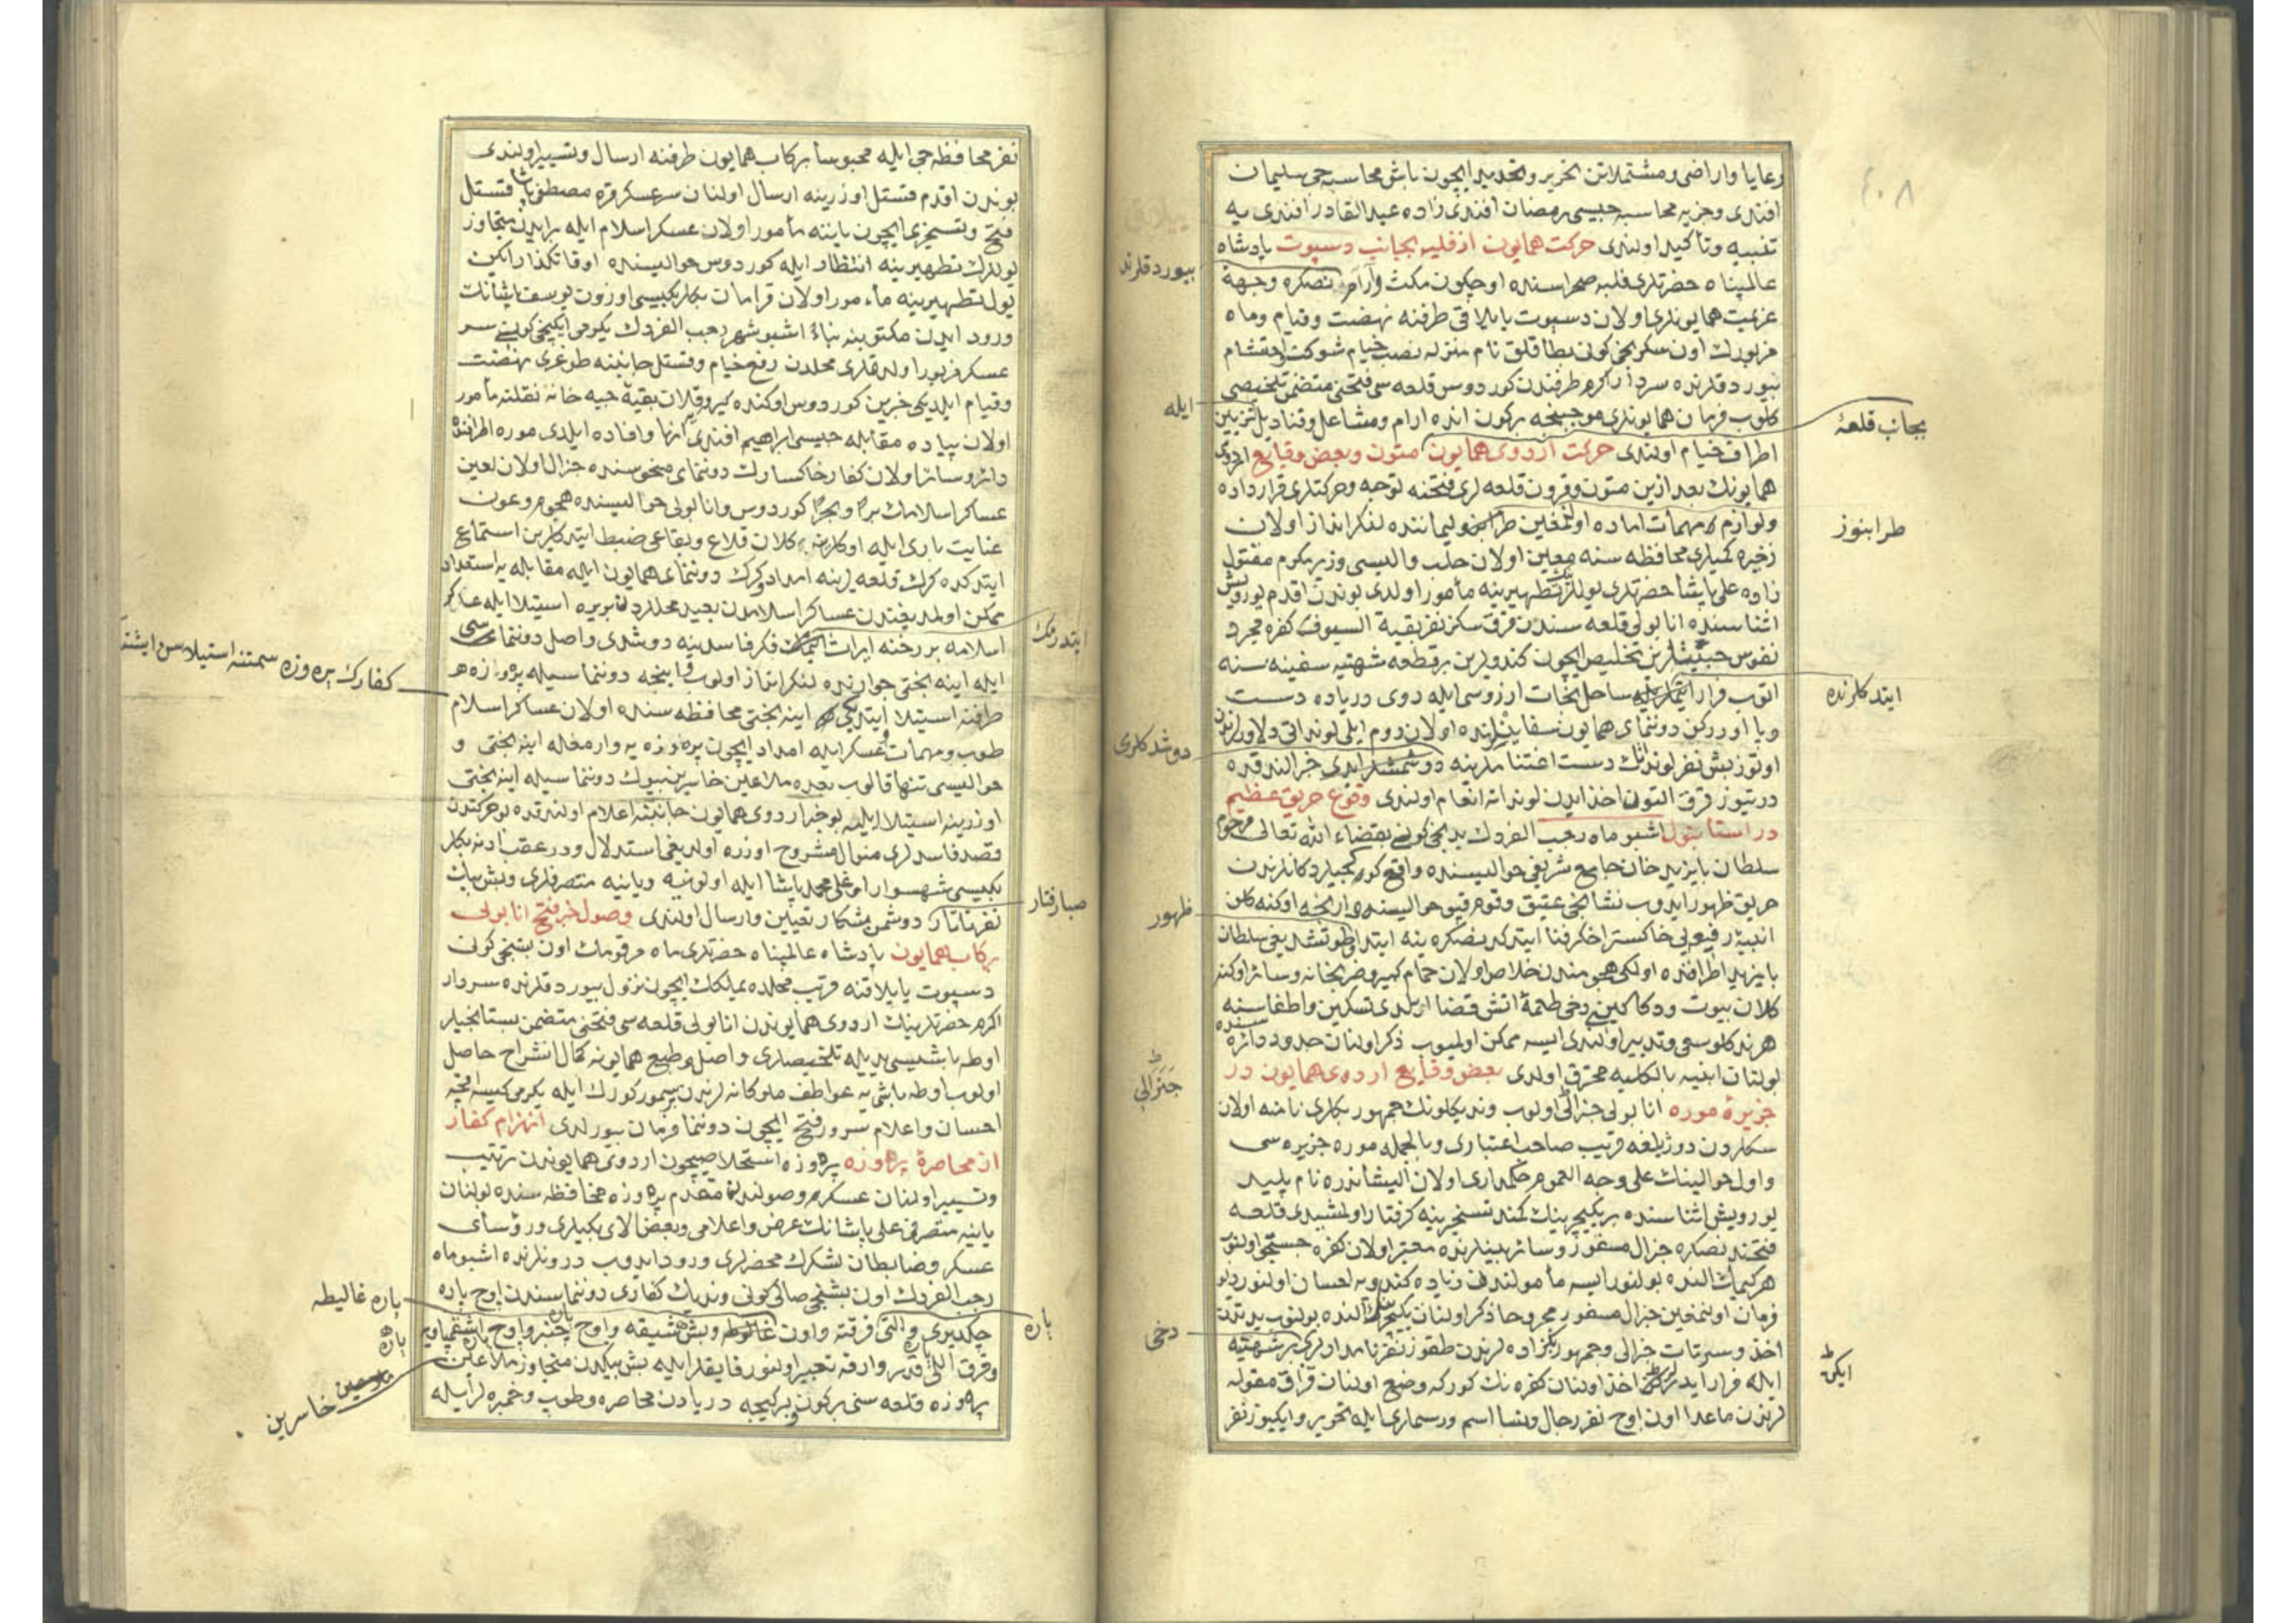 ٤٠٨
رعایا و اراضی و مشتملاتن تحریر و تحدید ایچون باش محاسبه جی سلیمان
افندی و جزیه محاسبه جیسی رمضان افندی زاده عبدالقادر افندی یه
تنبیه و تأکید اولندی حرکت همایون از قلبه بجانب دسپوت پادشاه
عالمپناه حضرتلری قلبه صحراسنده اوچ کون مکث و آرامدن صکره وجههٔ
عزیمت همایونلری اولان دسپوت یایلاقی طرفنه نهضت و قیام و ماه
مزبورك اون سکزنجی کونی بطاقلق نام منزله نصب خیام شوکت احتشام
بیوردقلرنده سردار اکرم طرفندن کوردوس قلعه سی فتحنی متضمن تلخیصی
کلوب فرمان همایونلری موجبنجه برکون انده ارام و مشاعل و قنادیل تزیین
اطراف خیام اولندی حرکت اردوی همایون متون و بعض وقایع اردوی
همایونك بعد ازین متون و قرون قلعه لری فتحنه توجه و حرکتلری قرارداده
و لوازم مهمات اماده اولنمغین طرابنو لیماننده لنکرانداز اولان
زخیره کمیلری محافظه سنه معین اولان حلب والیسی وزیر مکرم مقتول
زاده علی پاشا حضرتلری یوللرك تطهیرینه مأمور اولدی بوندن اقدم یورویش
اثناسنده انابولی قلعه سندن قرق سکز نفر بقیة السیوف کفره مجرد
نفوس خبیثلرین تخلیص ایچون کندولرین برقطعه شهتیه سفینه سنه
اتوب فرار ایتملریله ساحل نجات ارزوسی ایله روی دریاده دست
و پا اوررکن دوننمای همایون سفاینلرنده اولان روم ایلی لونداتی دلاورلرندن
اوتوز بش نفر لوندك دست اغتنامارینه دوشمشلر ایدی خراندقده
دریتیوز قرق التون اخذ ایدن لونداته انعام اولندی وقوع حریق عظیم
در استانبول اشبو ماه رجب الفردك یدنجی کونی بقضاء الله تعالی مرحوم
سلطان بایزید خان جامع شریفی حوالیسنده واقع کورکجیلر دکانلرندن
حریق ظهور ایدوب نشانجی عتیق و قوم قپو حوالیسنده وارنجه اوکنه کلن
ابنیهٔ رفیعه یی خاکستر اخکر فنا ایتدکدنصکره ینه ابتدا طوتشدیغی سلطان
بایزید اطرافنده اولکی هجومندن خلاص اولان حمام کبیر و ضربخانه و سائر اوکنه
کلان بیوت و دکاکینی دخی طعمهٔ اتش قضا ایلدی تسکین و اطفاسنه
هرنه کلو سعی و تدبیر اولندی ایسه ممکن اولمیوب ذکر اولنان حدود دائره سنده
بولنان ابنیه بالکلیه محترق اولدی بعض وقایع اردوی همایون در
جزیرهٔ موره انابولی جنرالی اولوب وندیکلونك جمهور بکلری نامنه اولان
سکردن دوژیلغه قریب صاحب اعتباری و بالجمله موره جزیره سی
و اول حوالینك علی وجه العموم حکمداری اولان الیشاندره نام پلید
یورویش اثناسنده بریکیچرینك کمند تسخیرینه کرفتار اولمشیدی قلعه
فتحندنصکره جنرال مسفور و سائر بینلرنده معتبر اولان کفره جستجو اولنوب
هرکیمك النده بولنور ایسه مأمولندن زیاده کندویه احسان اولنور دیو
فرمان اولنمغین جنرال مسفور مجروحا ذکر اولنان یکیچرینك النده بولنوب یدندن
اخذ و سرتات جنرالی و جمهور بکزاده لرندن طقوز نفر نامداولری برشهتیه
ایله فرار ایدرلرکن اخذ اولنان کفره نك کورکه وضع اولنان قراق مقوله
لرندن ماعدا اون اوچ نفر رجال و نسا اسم و رسملری ایله تحریر و ایکیوز نفر
بیوردقلرند
ایله
دوشدکلری
ظهور
جنرالی
دخی
بجانب قلعهٔ
طرابنوز
ایتدکلرنده
ایکن
نفر محافظه جی ایله محبوسا رکاب همایون طرفنه ارسال و تسییر اولندی
بوندن اقدم قستل اوزرینه ارسال اولنان سرعسکر قره مصطفی پاشا قستل
فتح و تسخیری ایچون یاننه مأمور اولان عسکر اسلام ایله برایدن متجاوز
یوللرك تطهیرینه انتظار ایله کوردوس حوالیسنده اوقاتکذار ایکن
یول تطهیرینه مأمور اولان قرامان بکلربکیسی اوزون یوسف پاشانك
ورود ایدن مکتوبنه بناءً اشبو شهر رجب الفردك یکرمی ایکنجی کونی سر
عسکر مزبور اولدقلری محلدن رفع خیام و قستل جانبنه طوغری نهضت
و قیام ایلدیکی خبرین کوردوس اوکنده کیرو قلان بقیهٔ جبه خانه نقلنه مأمور
اولان پیاده مقابله جیسی ابراهیم افندی انها و افاده ایلدی موره اطرافنده
دائر و سائر اولان کفار خاکسارك دوننمای منحوسنده جنرال اولان لعین
عساکر اسلامك براً و بحراً کوردوس و انابولی حوالیسنده هجوم و عون
عنایت باری ایله اوکلرینه کلان قلاع و بقاعی ضبط ایتدکلرین استماع
ایتدکده کرك قلعه لرینه امداد و کرك دوننمای همایون ایله مقابله یه استعداد
ممکن اولمدیغندن عساکر اسلامدن بعید محللردن بریره استیلا ایله عساکر
اسلامه بررخنه ایراث ایتمك فکر فاسدینه دوشدی و اصل دوننماسی
ایله اینه بختی جوارنده لنکرانداز اولوب و اینجه دوننماسیله پرەوزه
طرفنه استیلا ایتدیکی اینه بختی محافظه سنده اولان عساکر اسلام
طوب و مهمات و عسکر ایله امداد ایچون پرەوزه یه وارمغله اینه بختی و
حوالیسی تنها قالوب بعده ملاعین خاسرین بیوك دوننماسیله اینه بختی
اوزرینه استیلا ایلیه بو خبر اردوی همایون جانبنه اعلام اولندقده بو حرکتدن
قصد فاسدلری منوال مشروح اوزره اولدیغی استدلال و در عقب ادنه بکلر
بکیسی شهسوار اوغلی محمد پاشا ایله اولونیه و یانیه متصرفلری و بش بیك
نفر تاتار دوشمن شکار تعیین و ارسال اولندی وصول خبر فتح انابولی
برکاب همایون پادشاه عالمپناه حضرتلری ماه مرقومك اون بشنجی کونی
دسپوت یایلاقنه قریب محلده یملكلك ایچون نزول بیوردقلرنده سردار
اکرم حضرتلرینك اردوی همایوندن انابولی قلعه سی فتحنی متضمن بستانجیلر
اوطه باشیسی یدیله تلخیصلری واصل و طبع همایونه کمال انشراح حاصل
اولوب اوطه باشی یه عواطف ملوکانه لرندن برسمور کورك ایله یکرمی کیسه اقچه
احسان و اعلام سرور فتح ایچون دوننما فرمان بیورلدی انهزام کفار
از محاصرهٔ پرەوزه پرەوزه استخلاصیچون اردوی همایوندن ترتیب
و تسییر اولنان عسکر وصولندن مقدم پرەوزه محافظه سنده بولنان
یانیه متصرفی علی پاشانك عرض و اعلامی و بعض الای بکیلری و رؤسای
عسکر و ضابطان لشکرك محضرلری ورود ایدوب درونلرنده اشبو ماه
رجب الفردك اون بشنجی صالی کونی وندیك کفاری دوننماسندن اوچ پاره
چکدیری و التی فرقته و اون غالیطه و بش شیقه و اوچ چنبر و اوچ
و قرق اللی قدر وارقه تعبیر اولنور قایقلر ایله بش بیکدن متجاوز ملاعین
پرەوزه قلعه سنی برکون و برکیجه دریادن محاصره و طوب و خمبره لر ایله
ایتدرمك
صبارفتار
پاره
کفارك پرەوزه سمتنه استیلاسن ایشتد
پاره غالیطه
پاره
خاسرین